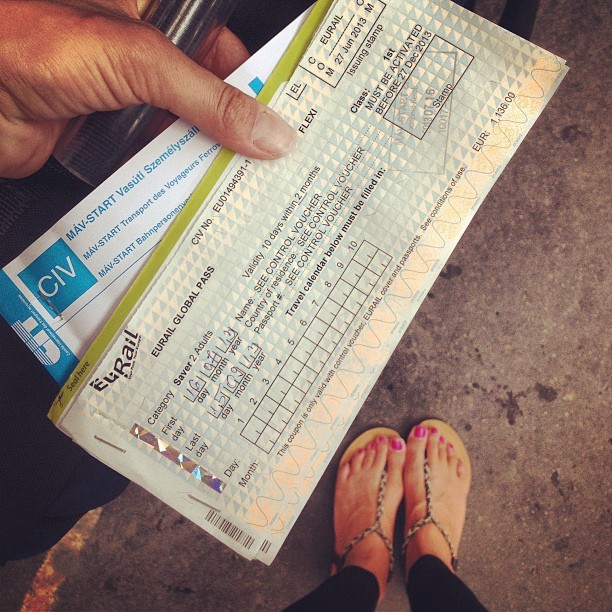 MÁV-START Vasúti Személyszál
MÁV-START Transport des Voyageurs Ferro
MÁV-START Bahnpersonen
CIV
Seal here
EuRail
EURAIL GLOBAL PASS
CIV No.: EU01494391-1
FLEXI
LEL
EURAIL
27 Jun 2013
Issuing stamp
Class: 1st
MUST BE ACTIVATED
BEFORE 27 Dec 2013
Stamp
EUR: 1,136.00
Category Saver 2 Adults
Validity 10 days within 2 months
First day
day month year
Last day
day month year
Name: SEE CONTROL VOUCHER
Country of residence: SEE CONTROL VOUCHER
Passport #: SEE CONTROL VOUCHER
Travel calendar below must be filled in:
1 2 3 4 5 6 7 8 9 10
Day:
Month:
This coupon is only valid with control voucher, EURAIL cover and passports. See conditions of use.